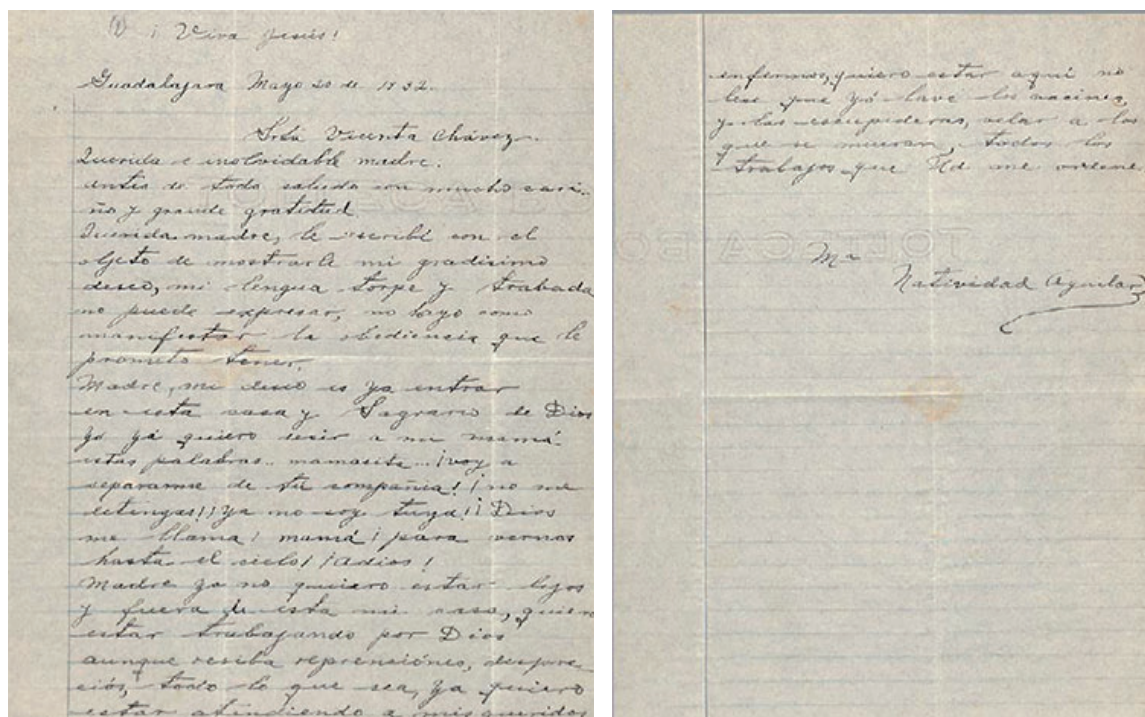 (1) ¡ Viva Jesús!
Guadalajara Mayo 20 de 1932.
Srta Vicenta Chávez.
Querida e inolvidable madre.
antes de todo saludo con mucho cari-
ño y grande gratitud
Querida madre, le escribí con el
objeto de mostrarle mi gradisimo
deseo, mi lengua torpe y trabada
no puede expresar, no hayo como
manifestar la obediencia que le
prometo tener.
Madre, mi deseo es ya entrar
en esta casa y Sagrario de Dios
yo yá quiero desir a mi mamá
estas palabras.. mamasita...¡voy a
separarme de tu compañia! ¡no me
detingas!¡ya no soy tuya!¡Dios
me llama! mamá ¡para vernos
hasta el sielo! ¡adios!
Madre ya no quiero estar lejos
y fuera de esta mi casa, quiero
estar trabajando por Dios
aunque resiba reprensiónes, despre-
ciós, todo lo que sea, ya quiero
estar atindiendo a mis queridos
enfermos, quiero estar aquí no
que yó lave los vacines,
y las escupideras, velar a los
que se mueran, todos los
trabajos que Ud me ordene
Ma
Natividad Aguilar
TOLTECA BO